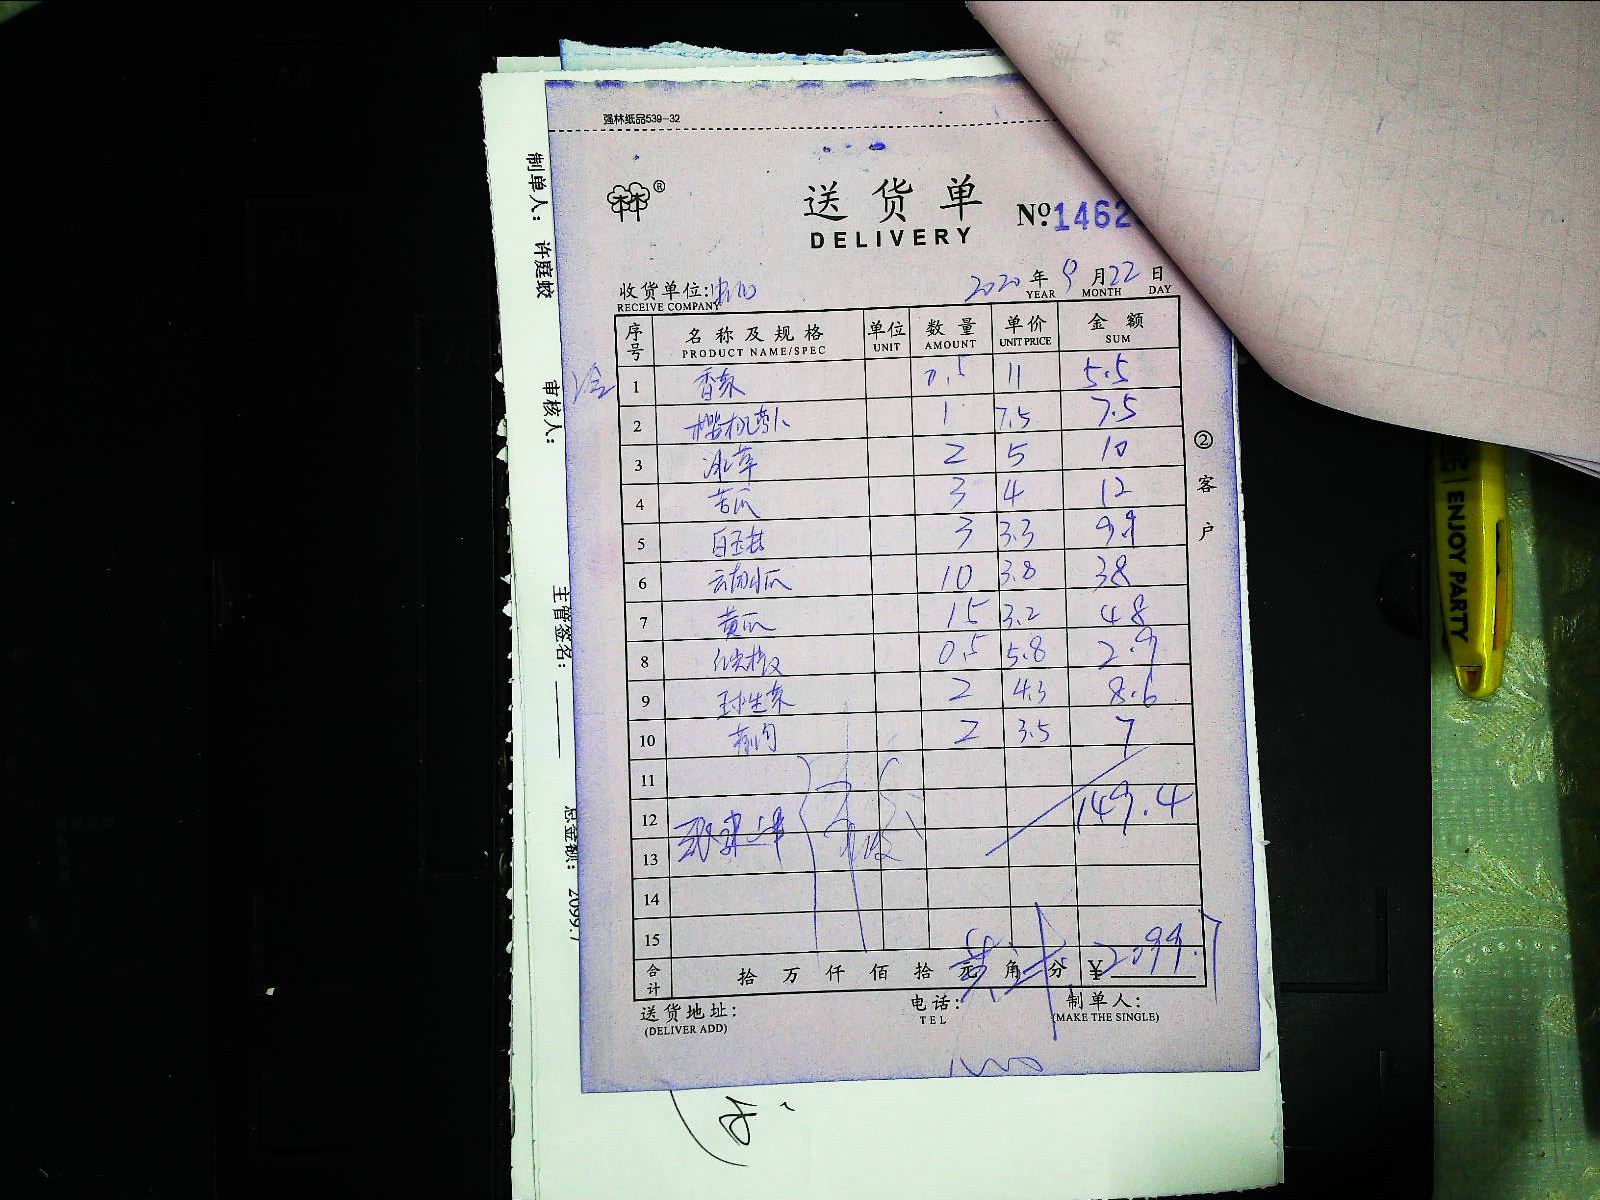 强林纸品539-32
送货单
DELIVERY
№ 1462
收货单位:
RECEIVE COMPANY
2020 年 9 月 22 日
YEAR MONTH DAY
序号 名称及规格 单位 数量 单价 金额
PRODUCT NAME/SPEC UNIT AMOUNT UNIT PRICE SUM
冷
1 香菜 0.5 11 5.5
2 樱桃萝卜 1 7.5 7.5
3 冰草 2 5 10
4 苦瓜 3 4 12
5 白玉菇 3 3.3 9.9
6 云南小瓜 10 3.8 38
7 黄瓜 15 3.2 48
8 尖椒 0.5 5.8 2.9
9 球生菜 2 4.3 8.6
10 2 3.5 7
11
12 149.4
13
14
15
合计 拾 万 仟 佰 拾 元 角 分 ¥ 2099.7
送货地址:
(DELIVER ADD)
电话:
TEL
制单人:
(MAKE THE SINGLE)
② 客户
制单人: 许庭蛟
审核人:
主管签名:
总金额: 2099.7
ENJOY PARTY